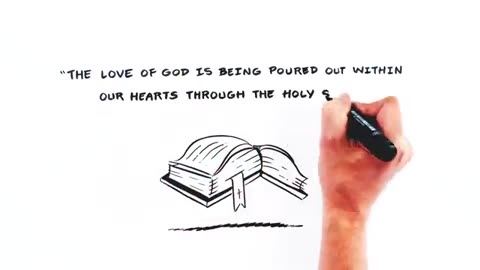 "THE LOVE OF GOD IS BEING POURED OUT WITHIN
OUR HEARTS THROUGH THE HOLY S